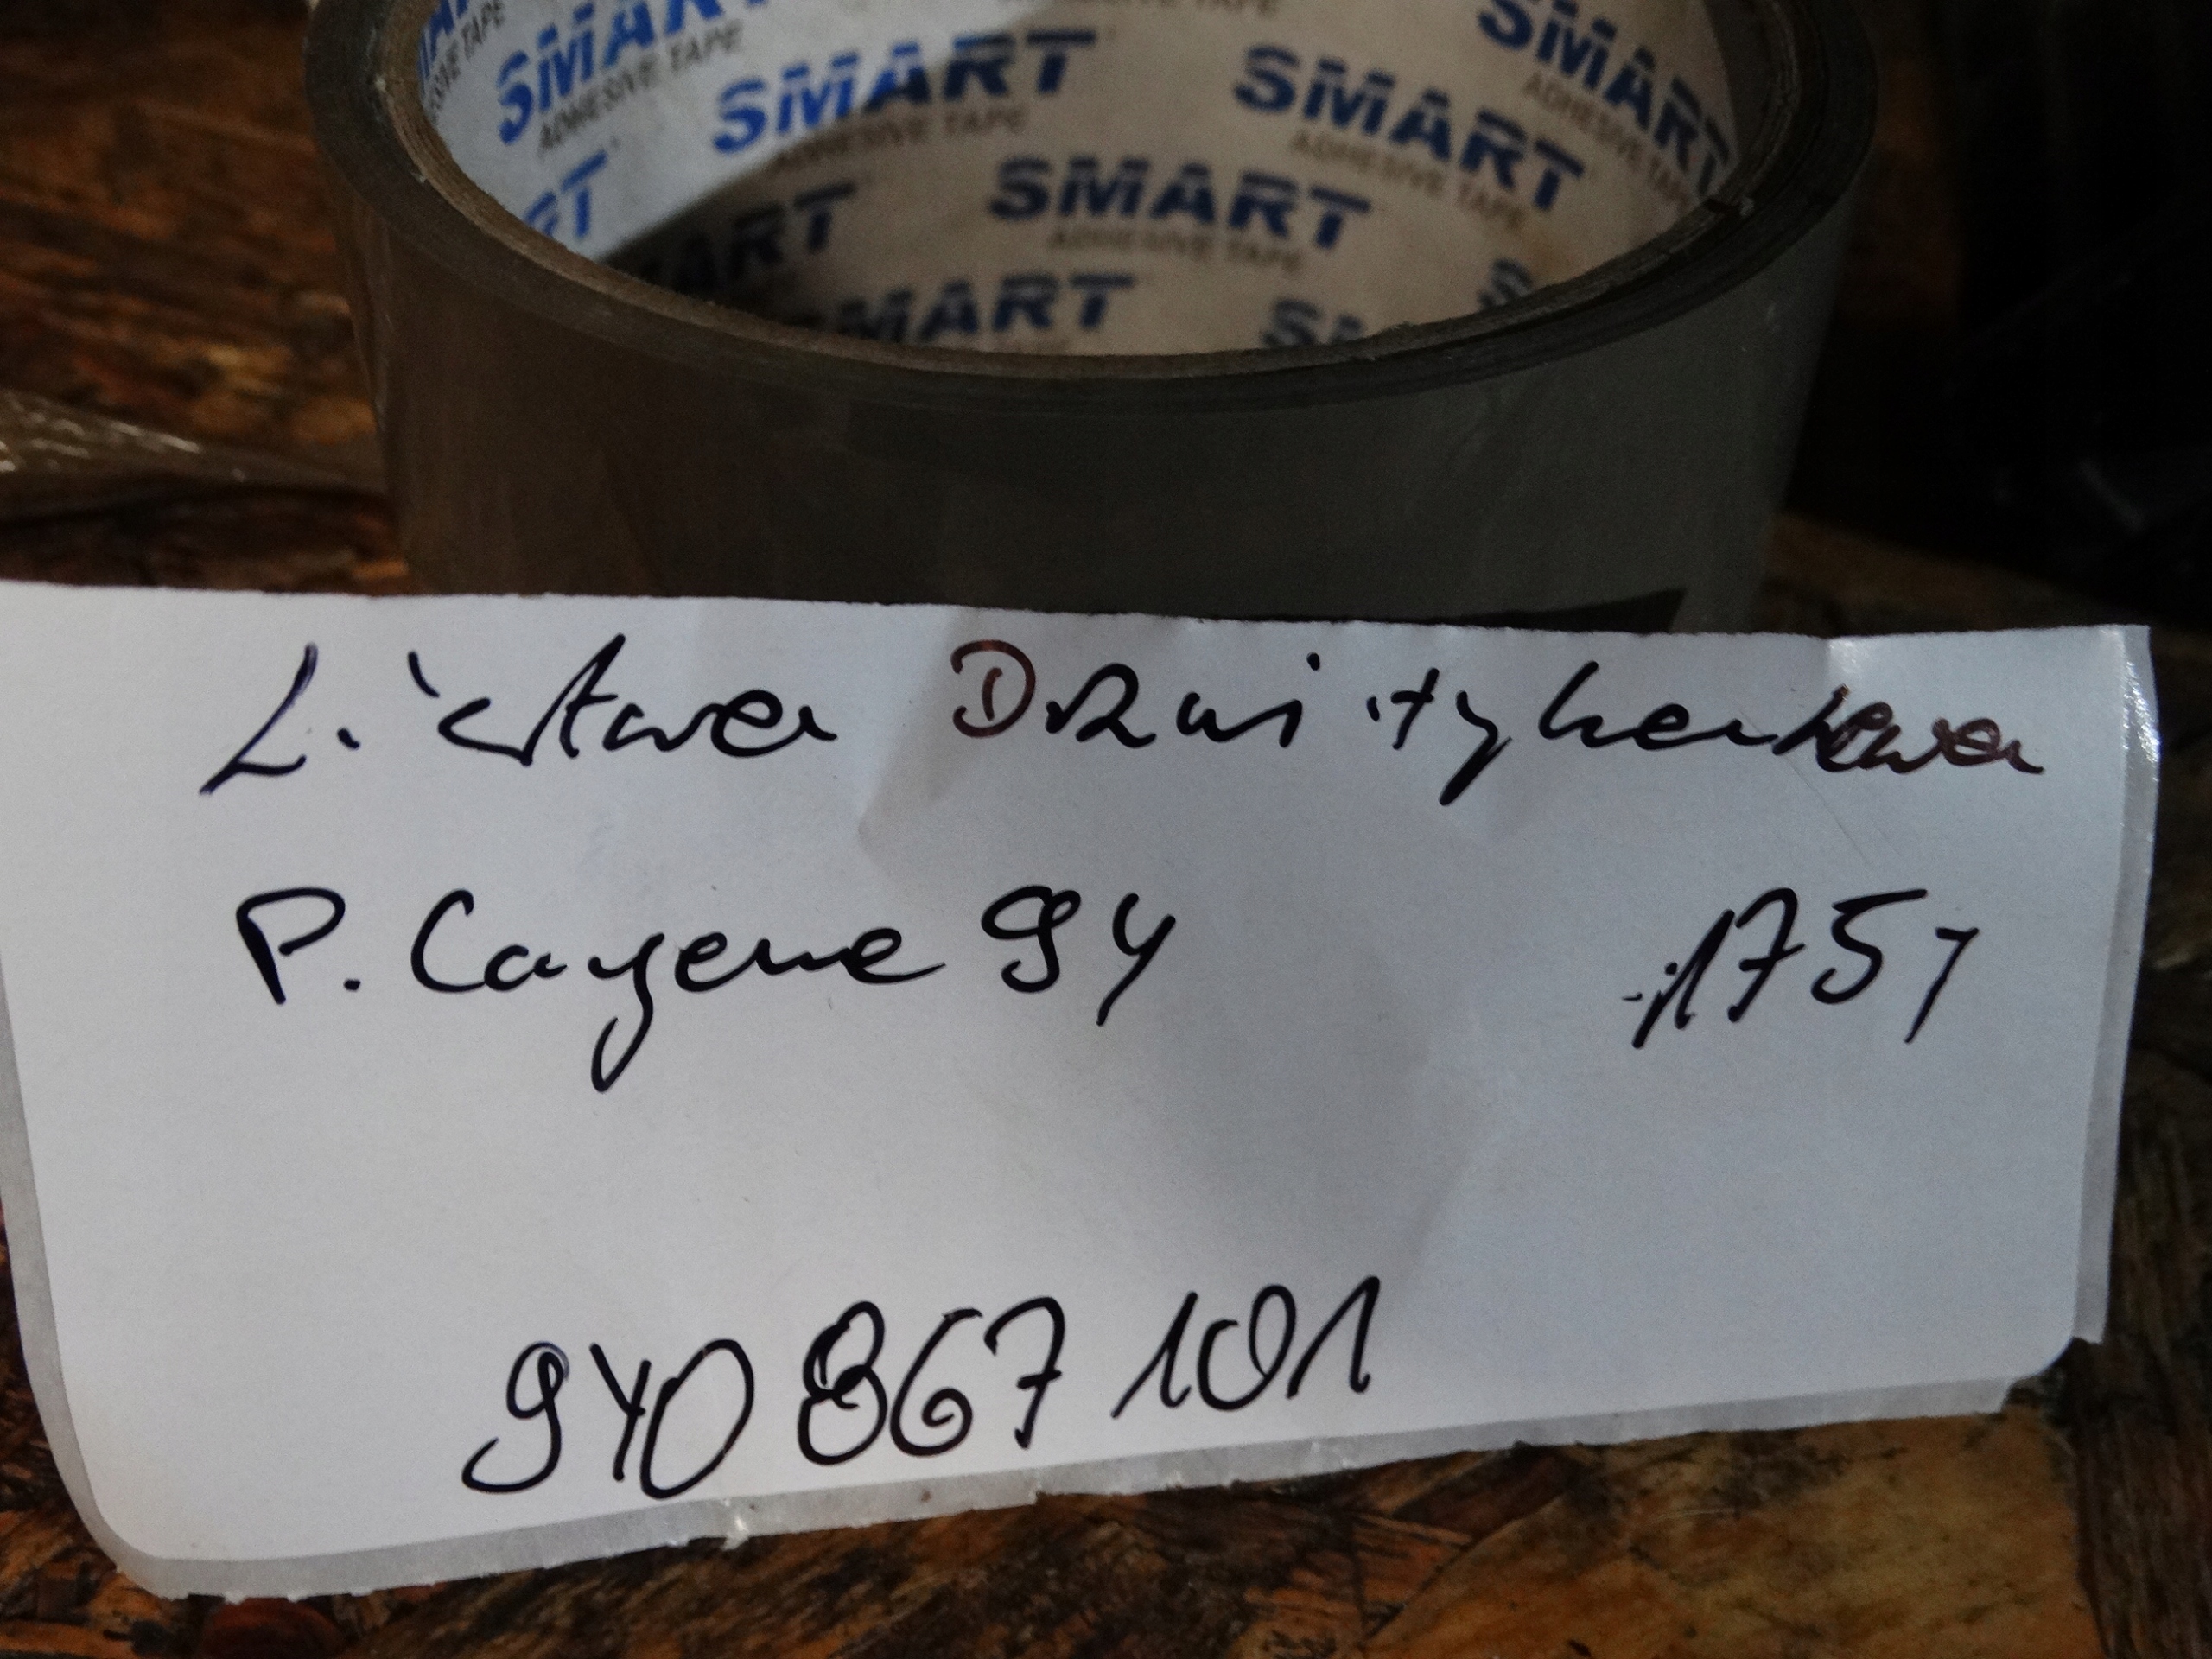 SMART
ADHESIVE TAPE
SMART
ADHESIVE TAPE
SMART
ADHESIVE TAPE
SMART
ADHESIVE TAPE
SMART
ADHESIVE TAPE
SMART
Listwa Drzwi
P. Cayene 9Y 175,
9Y0 867 101